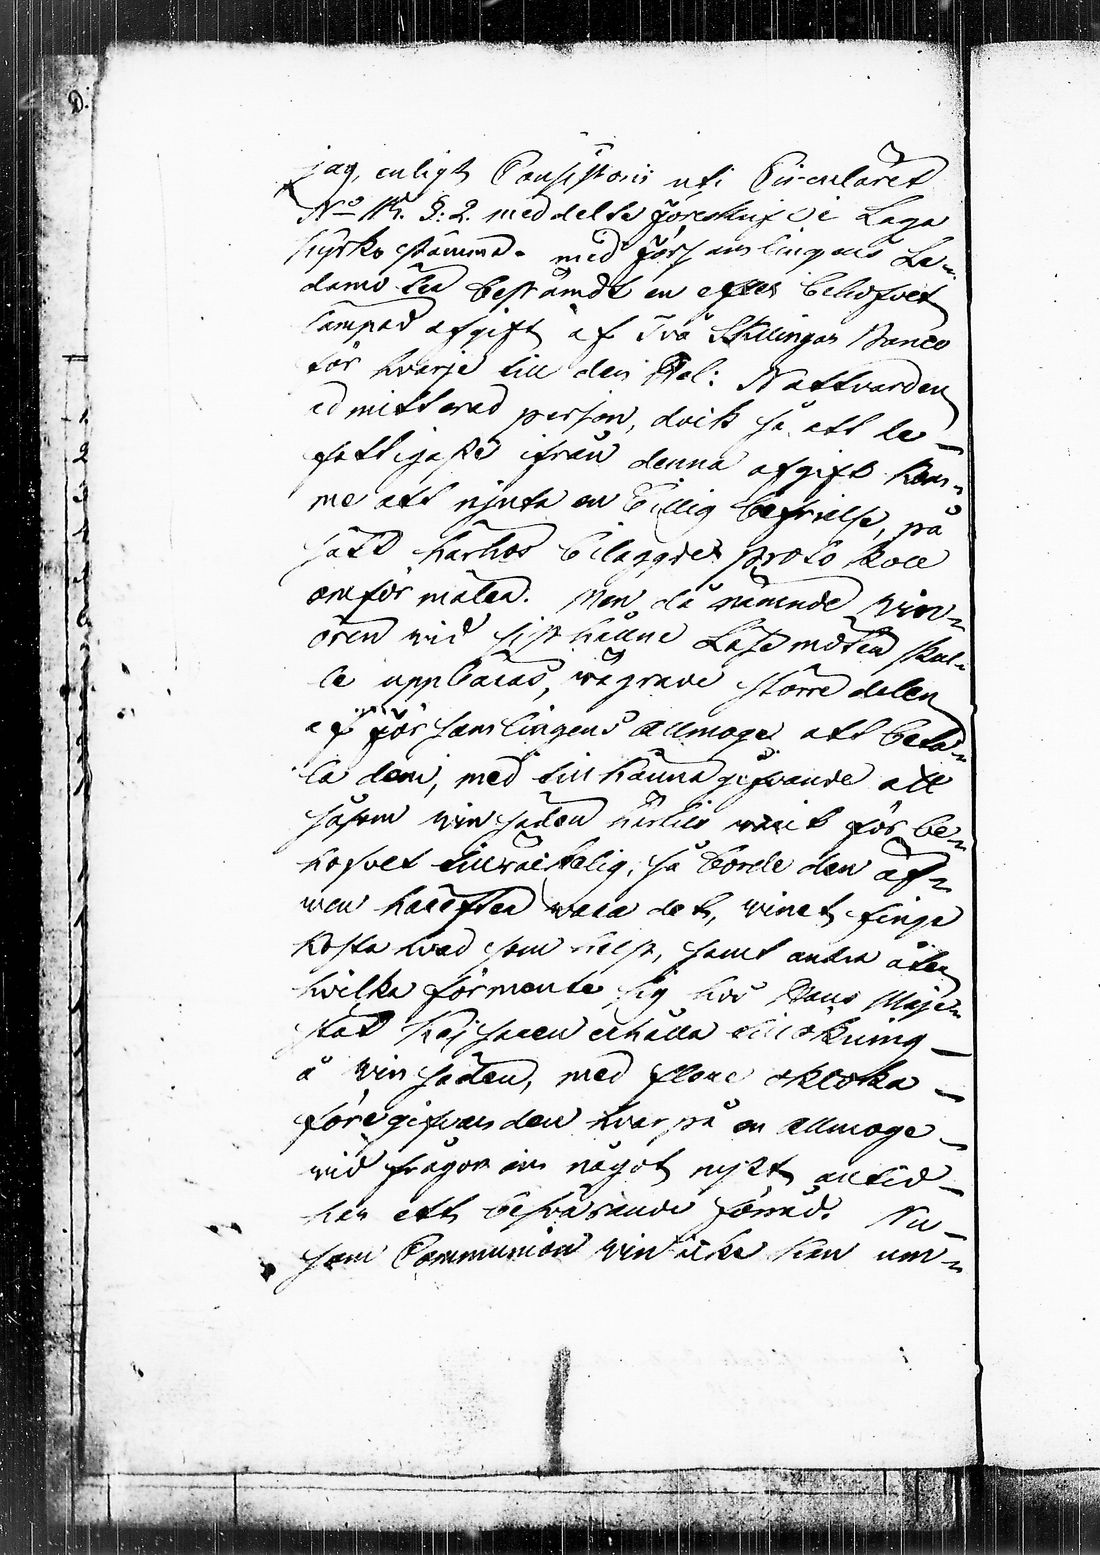 jag, enligt Consistorii uti Circulairet
No §. 2. meddelte föreskrift i Laga
kyrkostämma med församlingens Le-
damöter bestämdt en efter behofvet
lämpad afgift af Två Skillingar Banco
för hvarje till den Hel: Nattvarden
admitterad person, dock så att de
fattigaste ifrån denna afgift kom-
me att njuta en billig befrielse, på
sätt härhos bilagde protokoll
omförmäler. Men då nämnde win-
ören wid sisthållne Läsemöten skul-
le uppbäras, wägrade större delen
af församlingens Allmoge att beta-
la dem, med tillkännagifvande att
såsom winsäden härtills warit för be-
hofvet tillräckelig, så borde den äf-
wen härefter wara det, winet finge
kosta hvad som helst, samt andra åter
hvilka förmente sig hos Hans Maje-
stät Kejsaren erhålla tillökning
å winsäden, med flere okloka
föregifvanden hvarpå en allmoge
wid frågor om något nytt alltid
har ett besvärande förråd. Nu
som Communion win icke kan um-